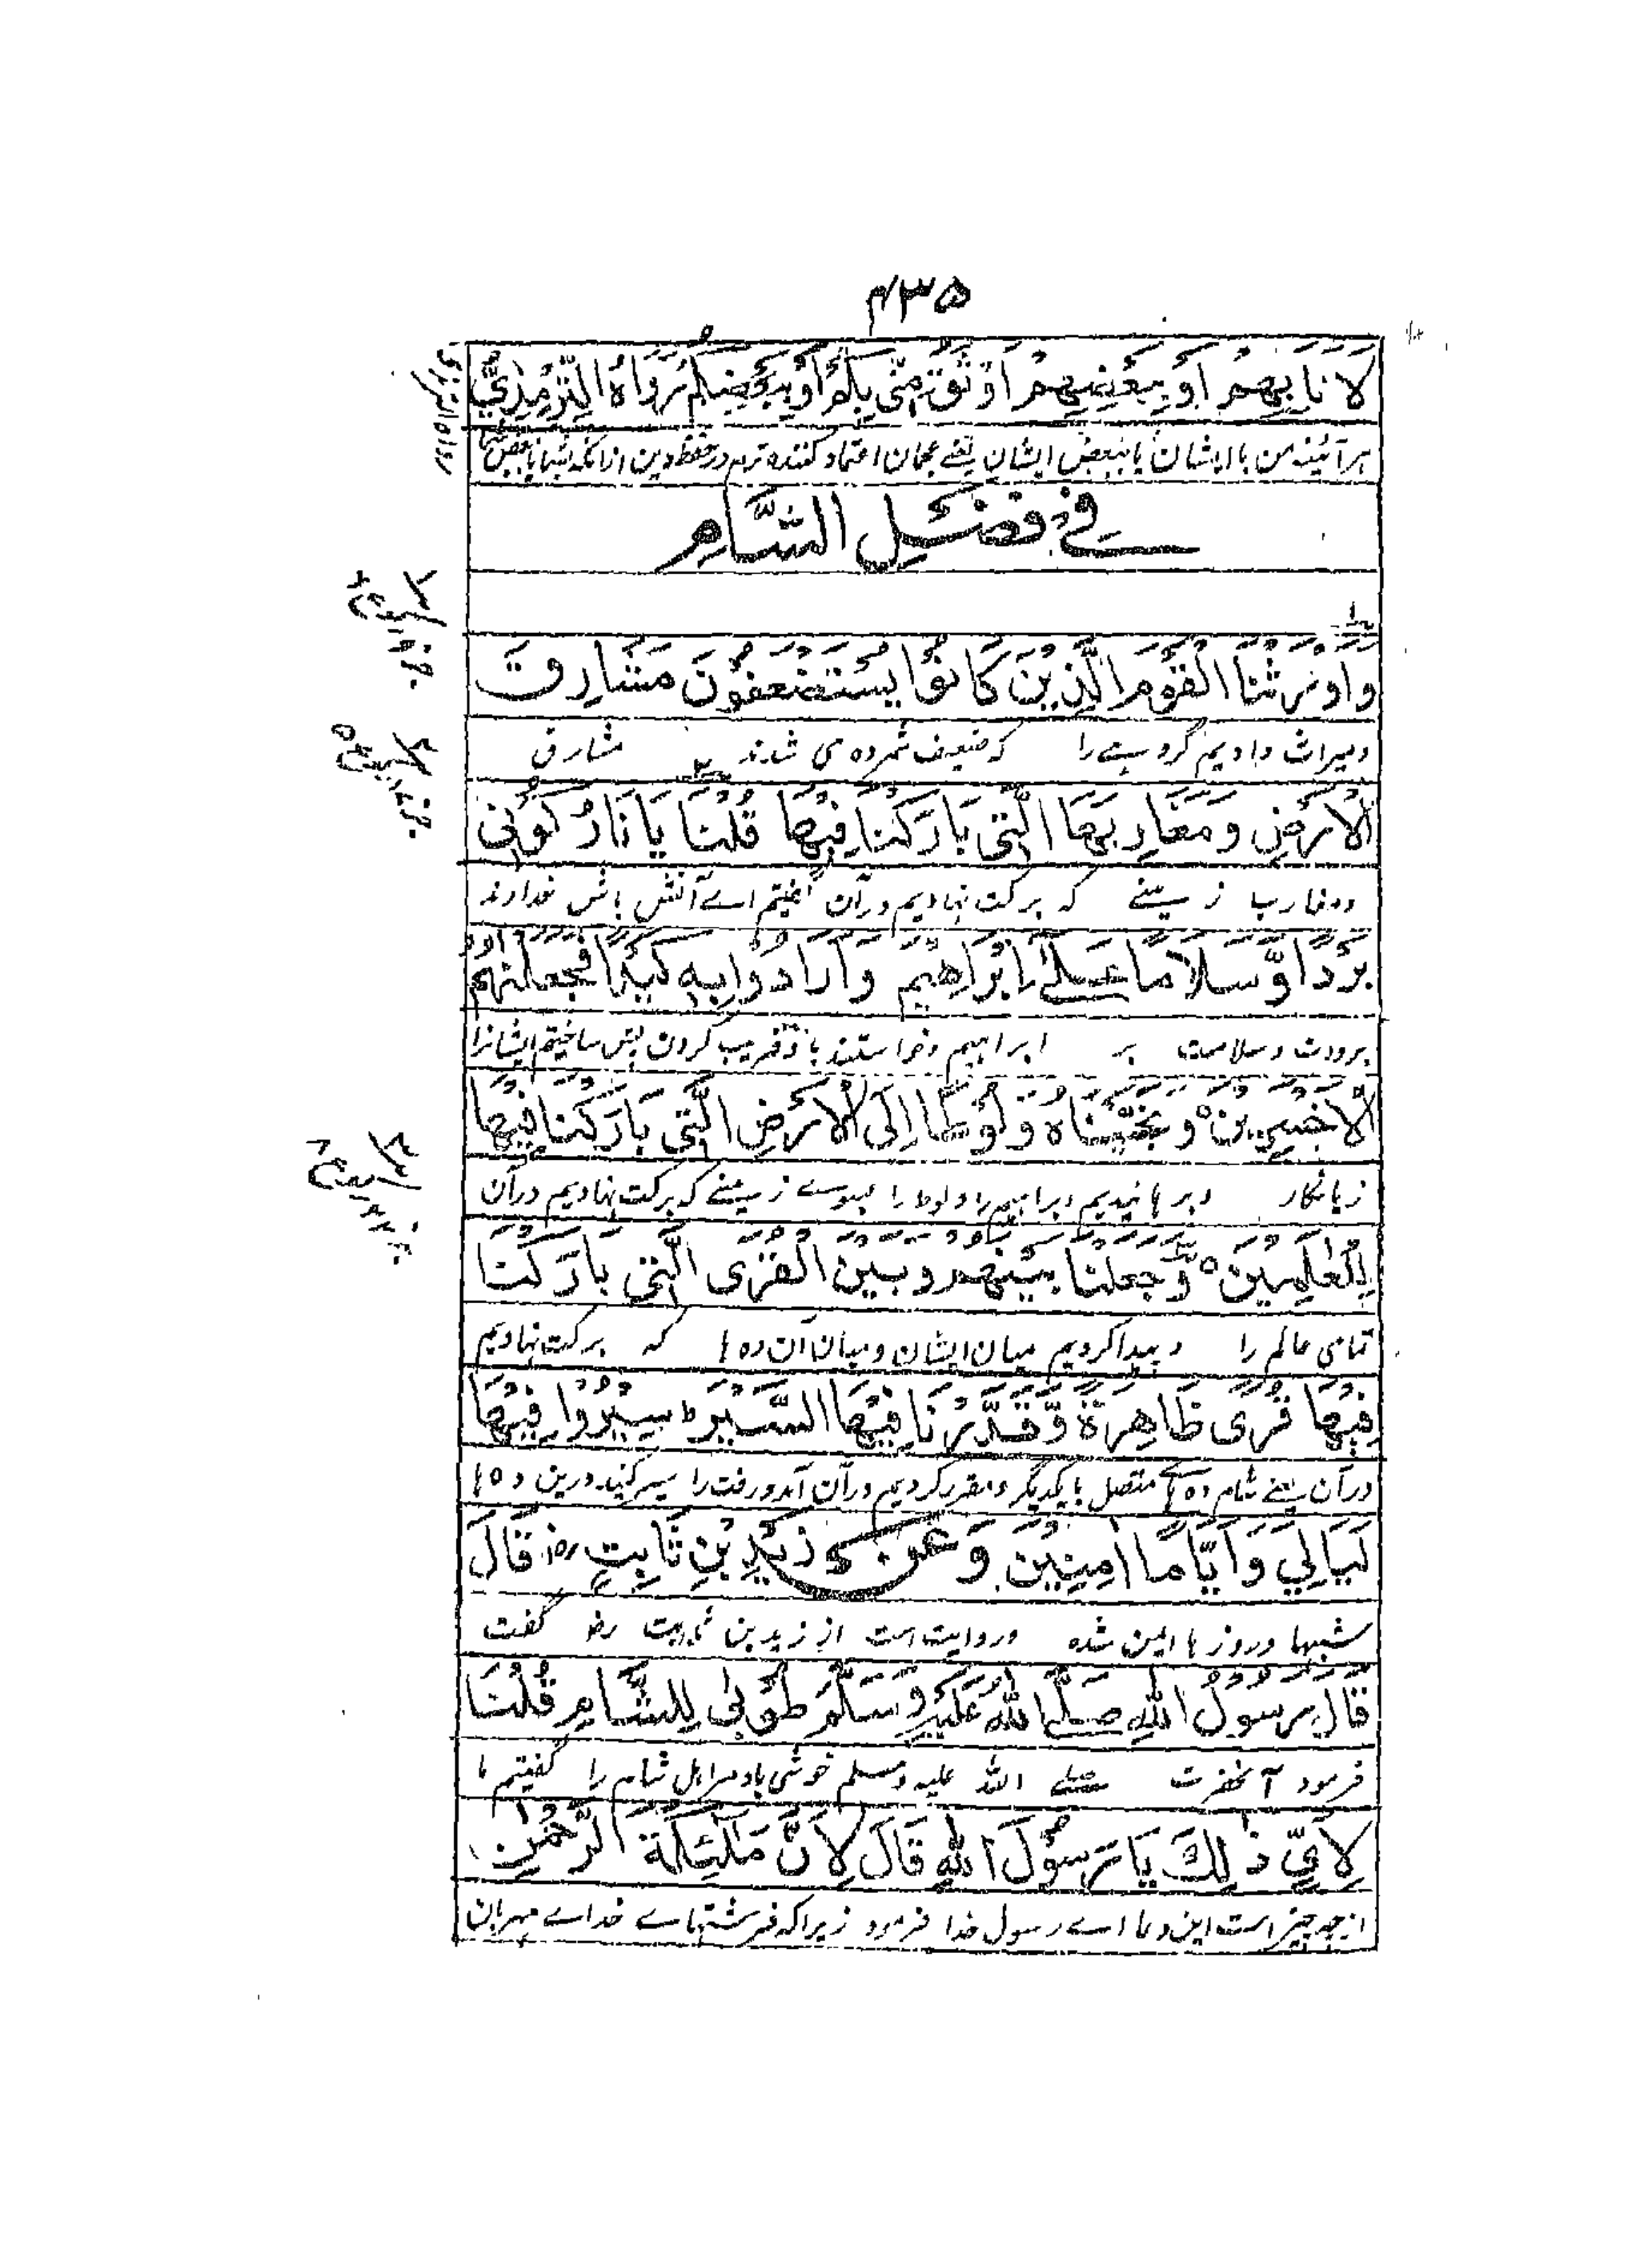 ۴۳۵
لَاَنَا بِهِمْ اَوْ بِبَعْضِهِمْ اَوْثَقُ مِنِّی بِکُمْ اَوْ بِبَعْضِکُمْ رَوَاهُ التِّرْمِذِیُّ
هرآئینه من با ایشان یا ببعض ایشان یعنے عجمان اعتماد کننده ترم در حفظ دین ازانکه بشما یا ببعض شما
فِیْ فَضْئِلِ الشَّامِ
وَاَوْرَثْنَا الْقَوْمَ الَّذِیْنَ کَانُوْا یُسْتَضْعَفُوْنَ مَشَارِقَ
ومیراث دادیم گروهے را که ضعیف شمرده می شدند مشارق
الْاَرْضِ وَمَغَارِبَهَا الَّتِی بَارَکْنَا فِیْهَا قُلْنَا یَا نَارُ کُوْنِی
ومغارب زمینے که برکت نهادیم درآن گفتیم اے آتش باش خداوند
بَرْدًا وَّسَلَامًا عَلٰی اِبْرَاهِیْمَ وَاَرَادُوْا بِهِ کَیْدًا فَجَعَلْنٰهُمُ
برودت وسلامت بر ابراهیم وخواستند باو فریب کردن پس ساختیم ایشانرا
الْاَخْسَرِیْنَ ۝ وَنَجَّیْنَاهُ وَلُوْطًا اِلَی الْاَرْضِ الَّتِی بَارَکْنَا فِیْهَا
زیانکار وبرهانیدیم ابراهیم را ولوط را بسوے زمینے که برکت نهادیم درآن
لِلْعٰلَمِیْنَ ۝ وَجَعَلْنَا بَیْنَهُمْ وَبَیْنَ الْقُرَی الَّتِی بَارَکْنَا
تمامی عالم را وپیدا کردیم میان ایشان ومیان آن ده ها که برکت نهادیم
فِیْهَا قُرًی ظَاهِرَةً وَّقَدَّرْنَا فِیْهَا السَّیْرَ ط سِیْرُوْا فِیْهَا
درآن یعنے شام ده هاے متصل بایکدیگر ومقرر کردیم درآن آمدورفت را سیر کنید درین ده ها
لَیَالِیَ وَاَیَّامًا اٰمِنِیْنَ وَعَنْ زَیْدِ بْنِ ثَابِتٍ رض قَالَ
شبها وروزها ایمن شده وروایت است از زید بن ثابت رض گفت
قَالَ رَسُوْلُ اللهِ صَلَّی اللهُ عَلَیْهِ وَسَلَّمَ طُوْبٰی لِلشَّامِ قُلْنَا
فرمود آنحضرت صلے الله علیه وسلم خوشی باد مراہل شام را گفتیم ما
لِاَیٍّ ذٰلِکَ یَا رَسُوْلَ اللهِ قَالَ لِاَنَّ مَلٰئِکَةَ الرَّحْمٰنِ
ازچه چیز است این دعا اے رسول خدا فرمود زیراکه فرشتهاے خداے مهربان